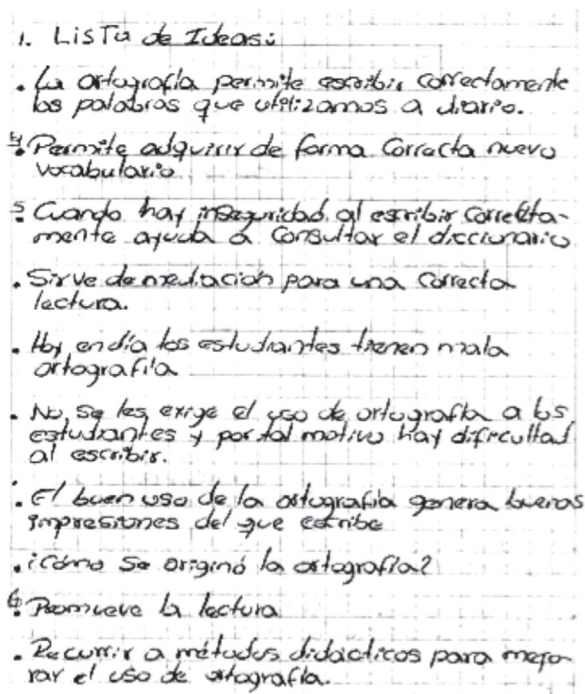 1. Lista de Ideas:
. La ortografía permite escribir correctamente
las palabras que utilizamos a diario.
4. Permite adquirir de forma correcta nuevo
vocabulario
5. Cuando hay inseguridad al escribir correcta-
mente ayuda a consultar el diccionario
. Sirve de mediación para una correcta
lectura.
. Hoy en día los estudiantes tienen mala
ortografía
. No se les exige el uso de ortografía a los
estudiantes y por tal motivo hay dificultad
al escribir.
. El buen uso de la ortografía genera buenas
impresiones del que escribe
. ¿Cómo se originó la ortografía?
6. Promueve la lectura
. Recurrir a métodos didácticos para mejo-
rar el uso de ortografía.